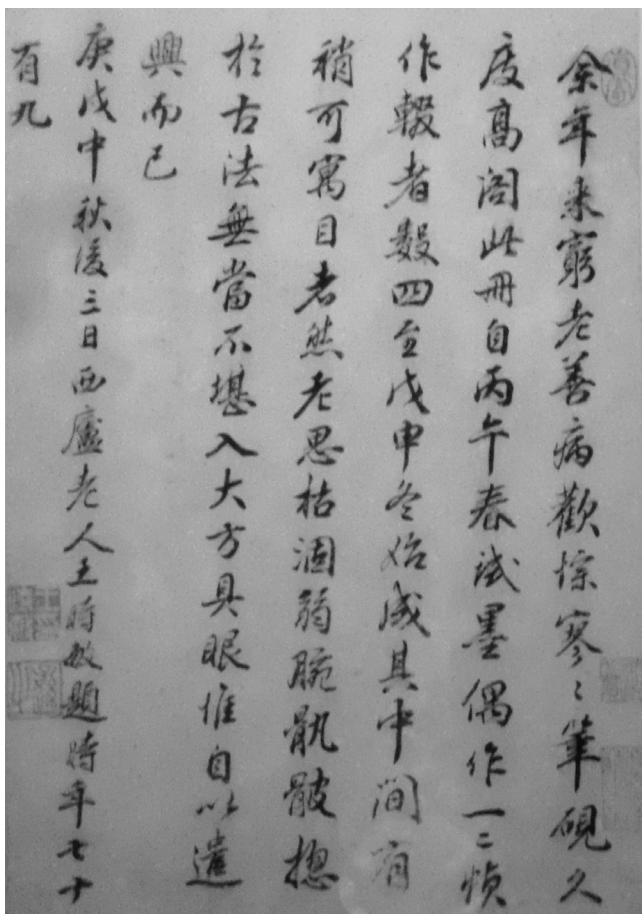 余年来窮老善病歡悰寥〻筆硯久
庋高閣此冊自丙午春試墨偶作一二幀
作輟者數四至戊申冬始成其中間有
稍可寓目者然老思枯涸弱腕骩骳揔
於古法無當不堪入大方具眼惟自以遣
興而已
庚戌中秋後三日西廬老人王時敏題時年七十
有九